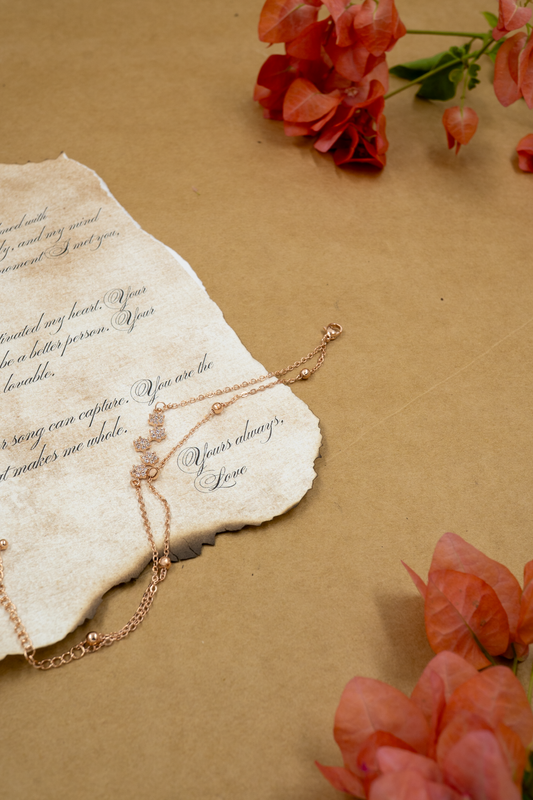 with
, and my mind
moment I met you,
my heart. Your
be a better person. Your
lovable.
You are the
song can capture.
makes me whole.
Yours always,
Love